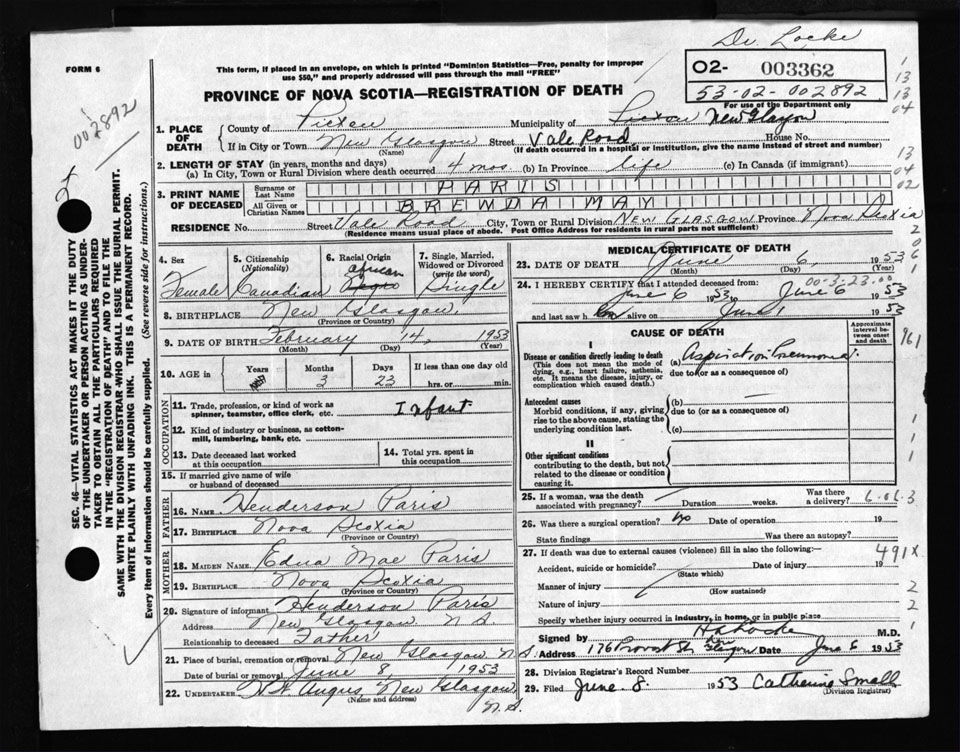 Dr. Locke
FORM 6
This form, if placed in an envelope, on which is printed "Dominion Statistics—Free, penalty for improper
use $50," and properly addressed will pass through the mail "FREE"
02- 003362
53-02-002892
PROVINCE OF NOVA SCOTIA—REGISTRATION OF DEATH
For use of the Department only
002892
1. PLACE OF DEATH
County of Pictou Municipality of Pictou New Glasgow
If in City or Town New Glasgow Street Vale Road House No.
(Name) (If death occurred in a hospital or institution, give the name instead of street and number)
2. LENGTH OF STAY (in years, months and days)
(a) In City, Town or Rural Division where death occurred 4 mos (b) In Province life (c) In Canada (if immigrant)
3. PRINT NAME OF DECEASED
Surname or Last Name PARIS
All Given or Christian Names BRENDA MAY
RESIDENCE No. Street Vale Road City, Town or Rural Division NEW GLASGOW Province Nova Scotia
(Residence means usual place of abode. Post Office Address for residents in rural parts not sufficient)
4. Sex Female
5. Citizenship (Nationality) Canadian
6. Racial Origin African Negro
7. Single, Married, Widowed or Divorced (write the word) Single
8. BIRTHPLACE New Glasgow
(Province or Country)
9. DATE OF BIRTH February 14, 1953
(Month) (Day) (Year)
10. AGE in Years Months 3 Days 23 If less than one day hrs. or min.
OCCUPATION
11. Trade, profession, or kind of work as spinner, teamster, office clerk, etc. Infant
12. Kind of industry or business, as cotton-mill, lumbering, bank, etc.
13. Date deceased last worked at this occupation
14. Total yrs. spent in this occupation
15. If married give name of wife or husband of deceased
FATHER
16. NAME Henderson Paris
17. BIRTHPLACE Nova Scotia
(Province or Country)
MOTHER
18. MAIDEN NAME Edna Mae Paris
19. BIRTHPLACE Nova Scotia
(Province or Country)
20. Signature of informant Henderson Paris
Address New Glasgow N.S.
Relationship to deceased Father
21. Place of burial, cremation or removal New Glasgow N.S.
Date of burial or removal June 8, 1953
22. UNDERTAKER Angus, New Glasgow, N.S.
(Name and address)
MEDICAL CERTIFICATE OF DEATH
23. DATE OF DEATH June 6, 1953
(Month) (Day) (Year)
24. I HEREBY CERTIFY that I attended deceased from:
June 6 1953 to June 6 1953
and last saw h er alive on June 1 1953
CAUSE OF DEATH
Approximate interval between onset and death
I
Disease or condition directly leading to death (a) Aspiration Pneumonia
(This does not mean the mode of dying, e.g., heart failure, asthenia, etc. It means the disease, injury, or complication which caused death.)
due to (or as a consequence of)
Antecedent causes (b)
Morbid conditions, if any, giving rise to the above cause, stating the underlying condition last.
due to (or as a consequence of)
(c)
II
Other significant conditions contributing to the death, but not related to the disease or condition causing it.
25. If a woman, was the death associated with pregnancy? Duration weeks. Was there a delivery?
26. Was there a surgical operation? No Date of operation 19
State findings Was there an autopsy?
27. If death was due to external causes (violence) fill in also the following:—
491X
Accident, suicide or homicide? Date of injury 19
(State which)
Manner of injury
(How sustained)
Nature of injury
Specify whether injury occurred in industry, in home, or in public place
Signed by H A Locke M.D.
Address 176 Provost St New Glasgow Date June 6 1953
28. Division Registrar's Record Number
29. Filed June 8. 1953 Catherine Small
(Division Registrar)
SEC. 46—VITAL STATISTICS ACT MAKES IT THE DUTY
OF THE UNDERTAKER OR PERSON ACTING AS UNDER-
TAKER TO OBTAIN ALL THE PARTICULARS REQUIRED
IN THE "REGISTRATION OF DEATH" AND TO FILE THE
SAME WITH THE DIVISION REGISTRAR WHO SHALL ISSUE THE BURIAL PERMIT.
WRITE PLAINLY WITH UNFADING INK. THIS IS A PERMANENT RECORD.
Every item of information should be carefully supplied. (See reverse side for instructions.)